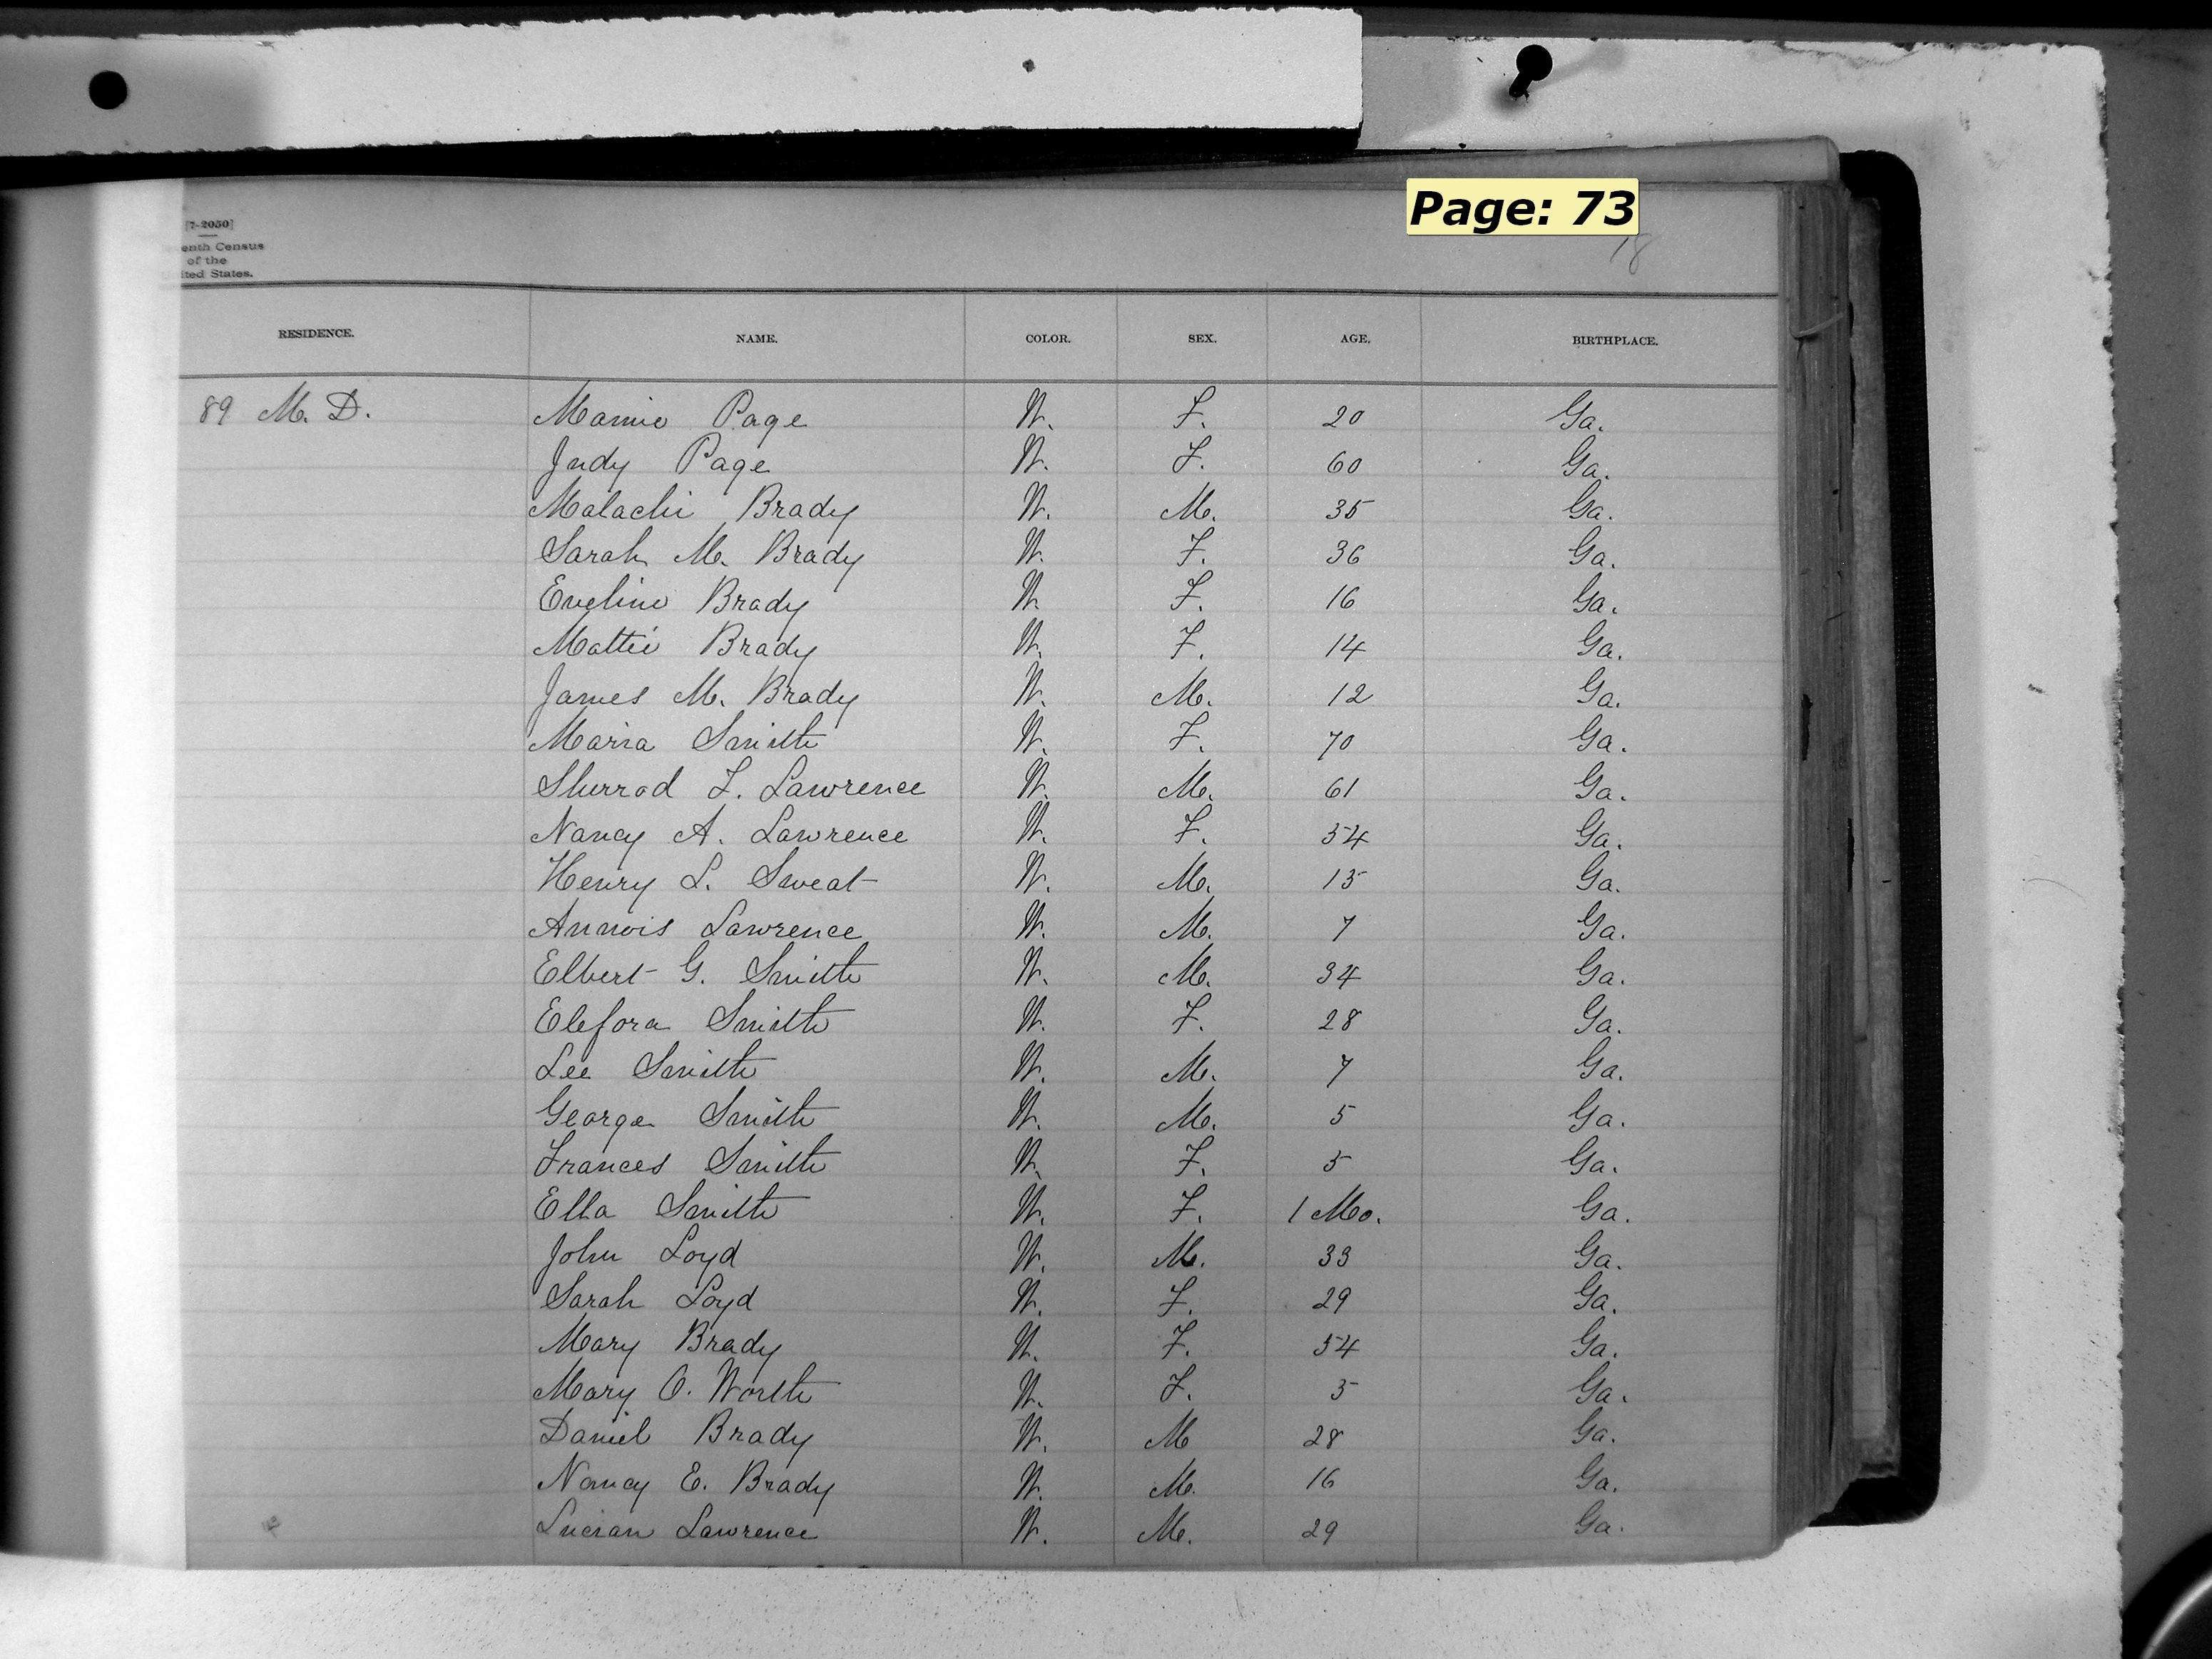 Page: 73
18
[7-2050]
enth Census
of the
ited States.
RESIDENCE. NAME. COLOR. SEX. AGE. BIRTHPLACE.
89 M. D. Mamie Page W. F. 20 Ga.
Judy Page W. F. 60 Ga.
Malachi Brady W. M. 35 Ga.
Sarah M. Brady W. F. 36 Ga.
Eveline Brady W. F. 16 Ga.
Mattie Brady W. F. 14 Ga.
James M. Brady W. M. 12 Ga.
Maria Smith W. F. 70 Ga.
Sherrod L. Lawrence W. M. 61 Ga.
Nancy A. Lawrence W. F. 54 Ga.
Henry L. Sweat W. M. 15 Ga.
Annois Lawrence W. M. 7 Ga.
Elbert G. Smith W. M. 34 Ga.
Elefora Smith W. F. 28 Ga.
Lee Smith W. M. 7 Ga.
George Smith W. M. 5 Ga.
Frances Smith W. F. 5 Ga.
Ella Smith W. F. 1 Mo. Ga.
John Loyd W. M. 33 Ga.
Sarah Loyd W. F. 29 Ga.
Mary Brady W. F. 54 Ga.
Mary O. Worth W. F. 5 Ga.
Daniel Brady W. M 28 Ga.
Nancy E. Brady W. M. 16 Ga.
Lucian Lawrence W. M. 29 Ga.